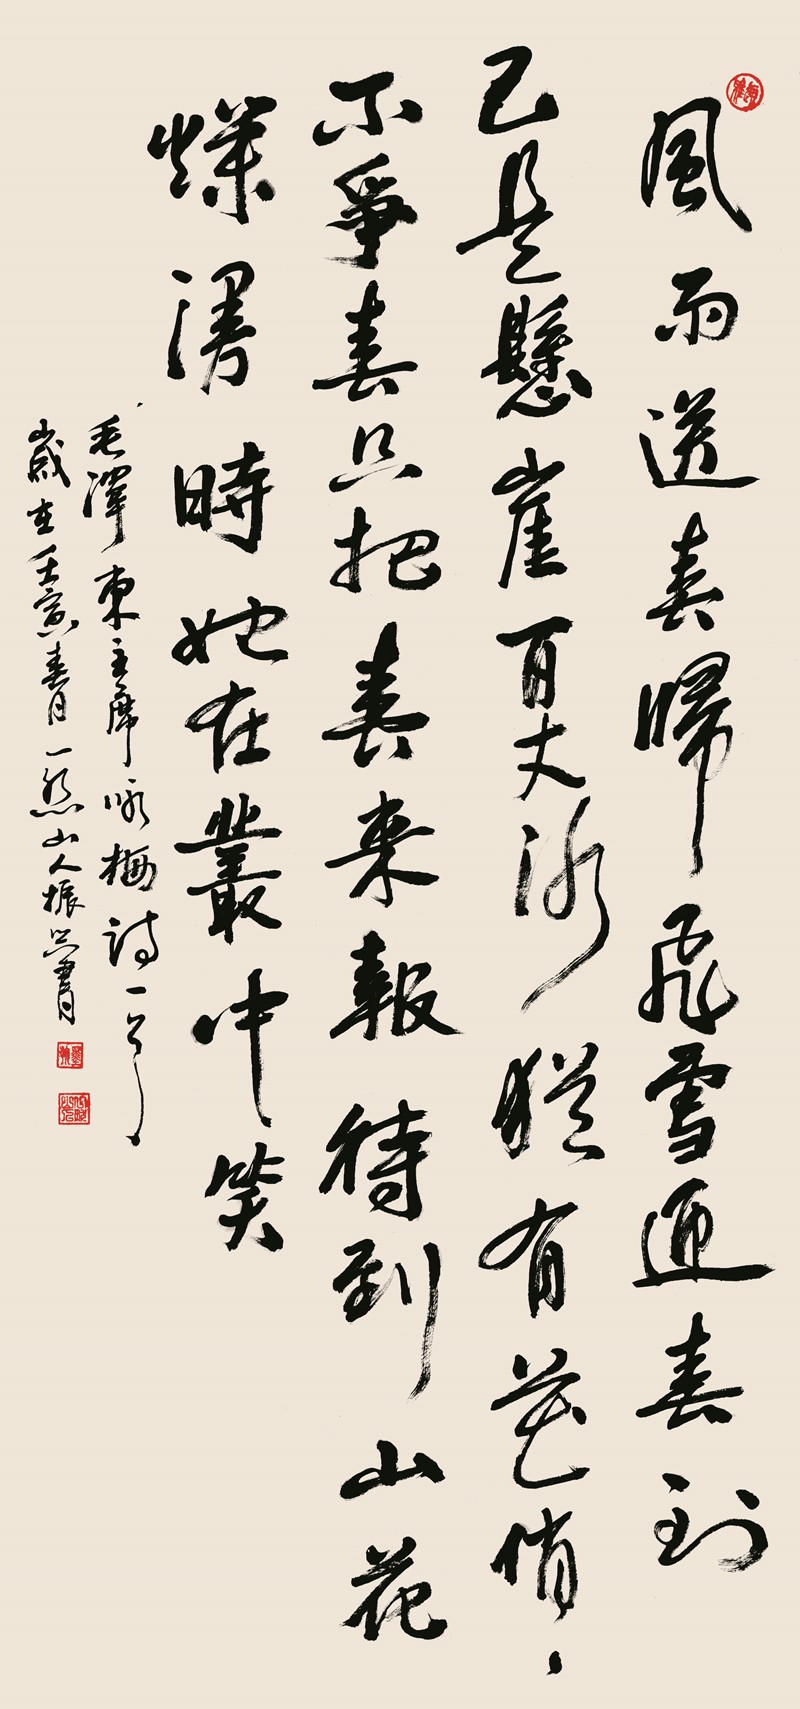 風雨送春歸飛雪迎春到
已是懸崖百丈冰猶有花俏
不爭春只把春來報待到山花
爛漫時她在叢中笑
毛澤東主席咏梅詩一首
歲在壬寅春月一然山人振興書